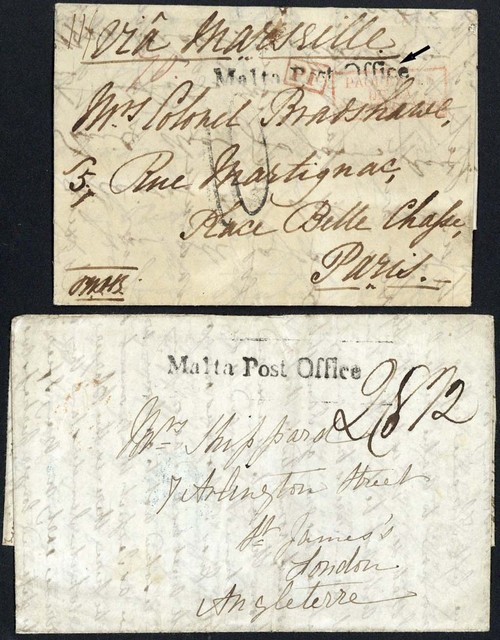 via Marseille
Malta Post Office
PF
Mrs Colonel Bradshawe,
5, Rue Martignac,
Place Belle Chasse,
Paris.
Malta Post Office
Mrs Shippard
7 Arlington Street
St James's
London
Angleterre